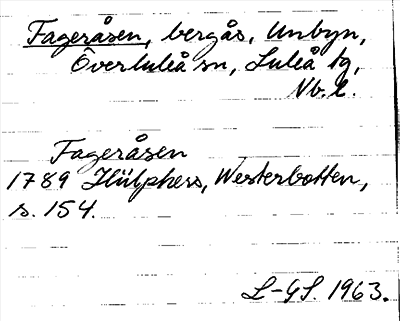 Fageråsen, bergås, Unbyn,
Överluleå sn, Luleå tg,
Nb. l.
Fageråsen
1789 Hülphers, Westerbotten,
s. 154.
L-GS. 1963.